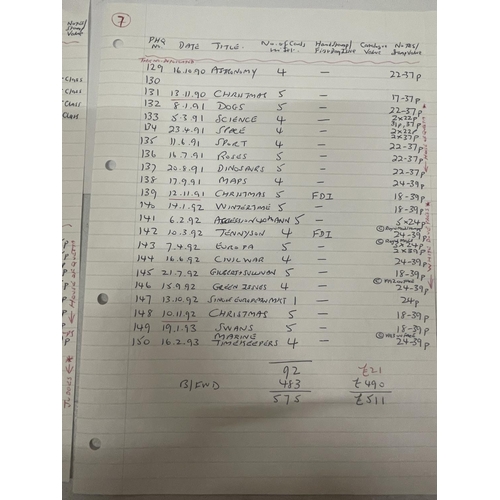 7
PHQ No. DATE TITLE. No. of Cards in Set. Handstamp/ First Day Issue Catalogue Value Notes/ Stamp Value
129 16.10.90 ASTRONOMY 4 — 22-37p
130
131 13.11.90 CHRISTMAS 5 — 17-37p
132 8.1.91 DOGS 5 — 22-37p
133 5.3.91 SCIENCE 4 — 2x22p 31p, 37p
134 23.4.91 SPACE 4 — 2x22p 2x37p
135 11.6.91 SPORT 4 — 22-37p
136 16.7.91 ROSES 5 — 22-37p
137 20.8.91 DINOSAURS 5 — 22-37p
138 17.9.91 MAPS 4 — 24-39p
139 12.11.91 CHRISTMAS 5 FDI 18-39p
140 14.1.92 WINTERTIME 5 — 18-39p
141 6.2.92 ACCESSION 40th ANN 5 — 5x24p
142 10.3.92 TENNYSON 4 FDI 24-39p
143 7.4.92 EUROPA 5 — 3x24p 2x39p
144 16.6.92 CIVIL WAR 4 — 24-39p
145 21.7.92 GILBERT & SULLIVAN 5 — 18-39p
146 15.9.92 GREEN ISSUES 4 — 24-39p
147 13.10.92 SINGLE EUROPEAN MKT 1 — 24p
148 10.11.92 CHRISTMAS 5 — 18-39p
149 19.1.93 SWANS 5 — 18-39p
150 16.2.93 MARINE TIMEKEEPERS 4 — 24-39p
92 £21
B/FWD 483 £490
575 £511